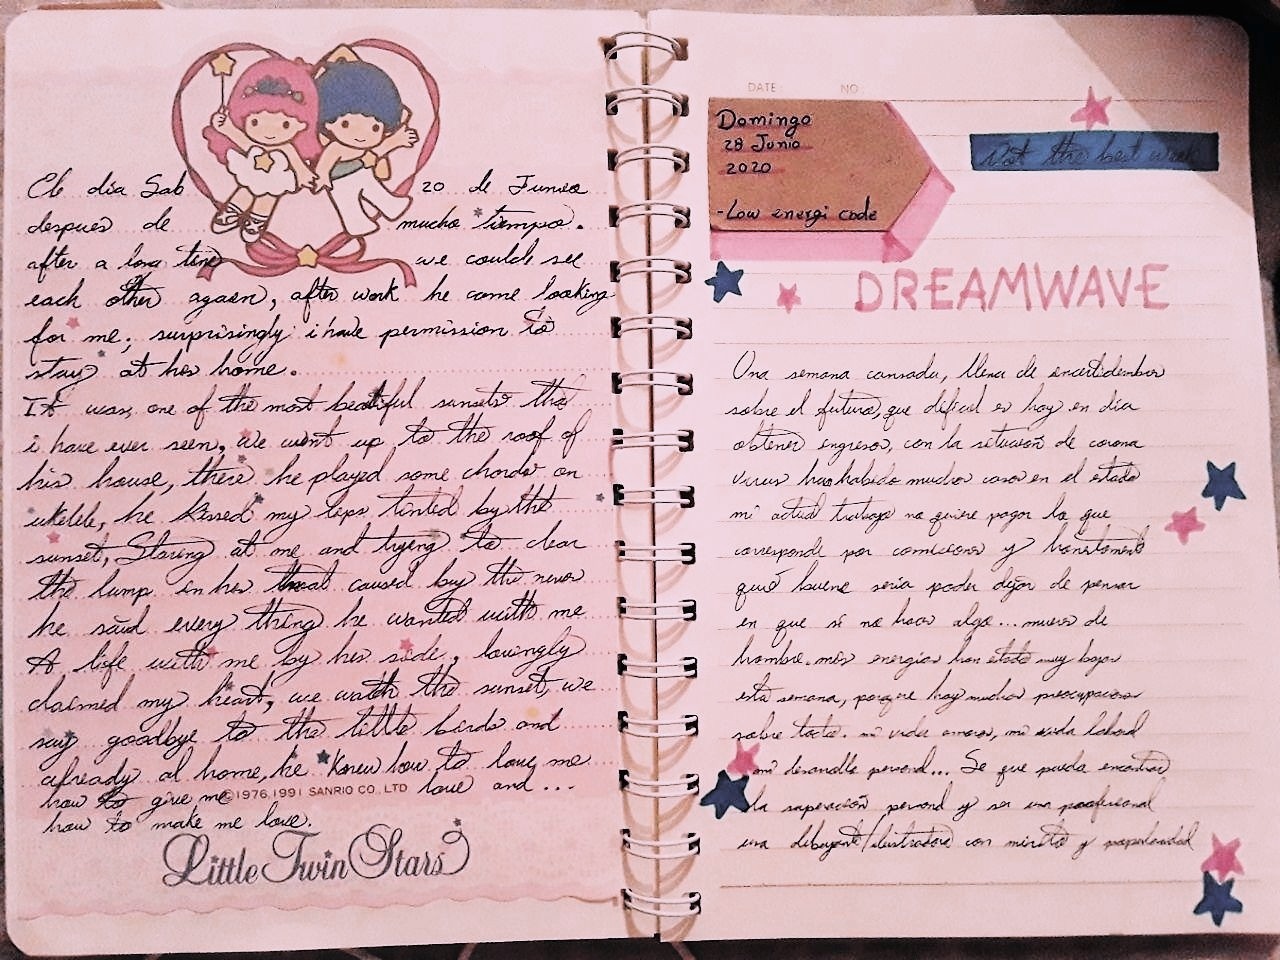 El dia Sab 20 de Junio
despues de mucho tiempo.
after a long time we coulde see
each other again, after work he come looking
for me, surprisingly i have permission to
stay at his home.
It was one of the most beautiful sunsets that
i have ever seen, we went up to the roof of
his house, there he played some chords on
ukelele, he kissed my lips tinted by the
sunset, Staring at me and trying to clear
the lump in his throat caused by the news
he said every thing he wanted with me
A life with me by his side, lovingly
claimed my heart, we watch the sunset, we
say goodbye to the little birds and
already at home, he Knew how to love me
how to give me love and ...
©1976,1991 SANRIO CO., LTD
how to make me love.
Little Twin Stars
DATE: NO
Domingo
28 Junio
2020
-Low energi code
Not the best week
DREAMWAVE
Una semana cansada, llena de incertidumbre
sobre el futuro, que dificil es hoy en dia
obtener ingresos, con la situación de corona
virus han habido muchos casos en el estado
mi actual trabajo no quiere pagar lo que
corresponde por comisiones y
que bueno seria poder dejar de pensar
en que si no hago algo... muero de
hambre. mis energias han estado muy bajas
esta semana, porque hay muchas preocupaciones
sobre todo. mi vida amorosa, mi vida laboral
mi desarrollo personal... Se que puedo encontrar
la superación personal y ser una profesional
una dibujante/ilustradora con merito y popularidad